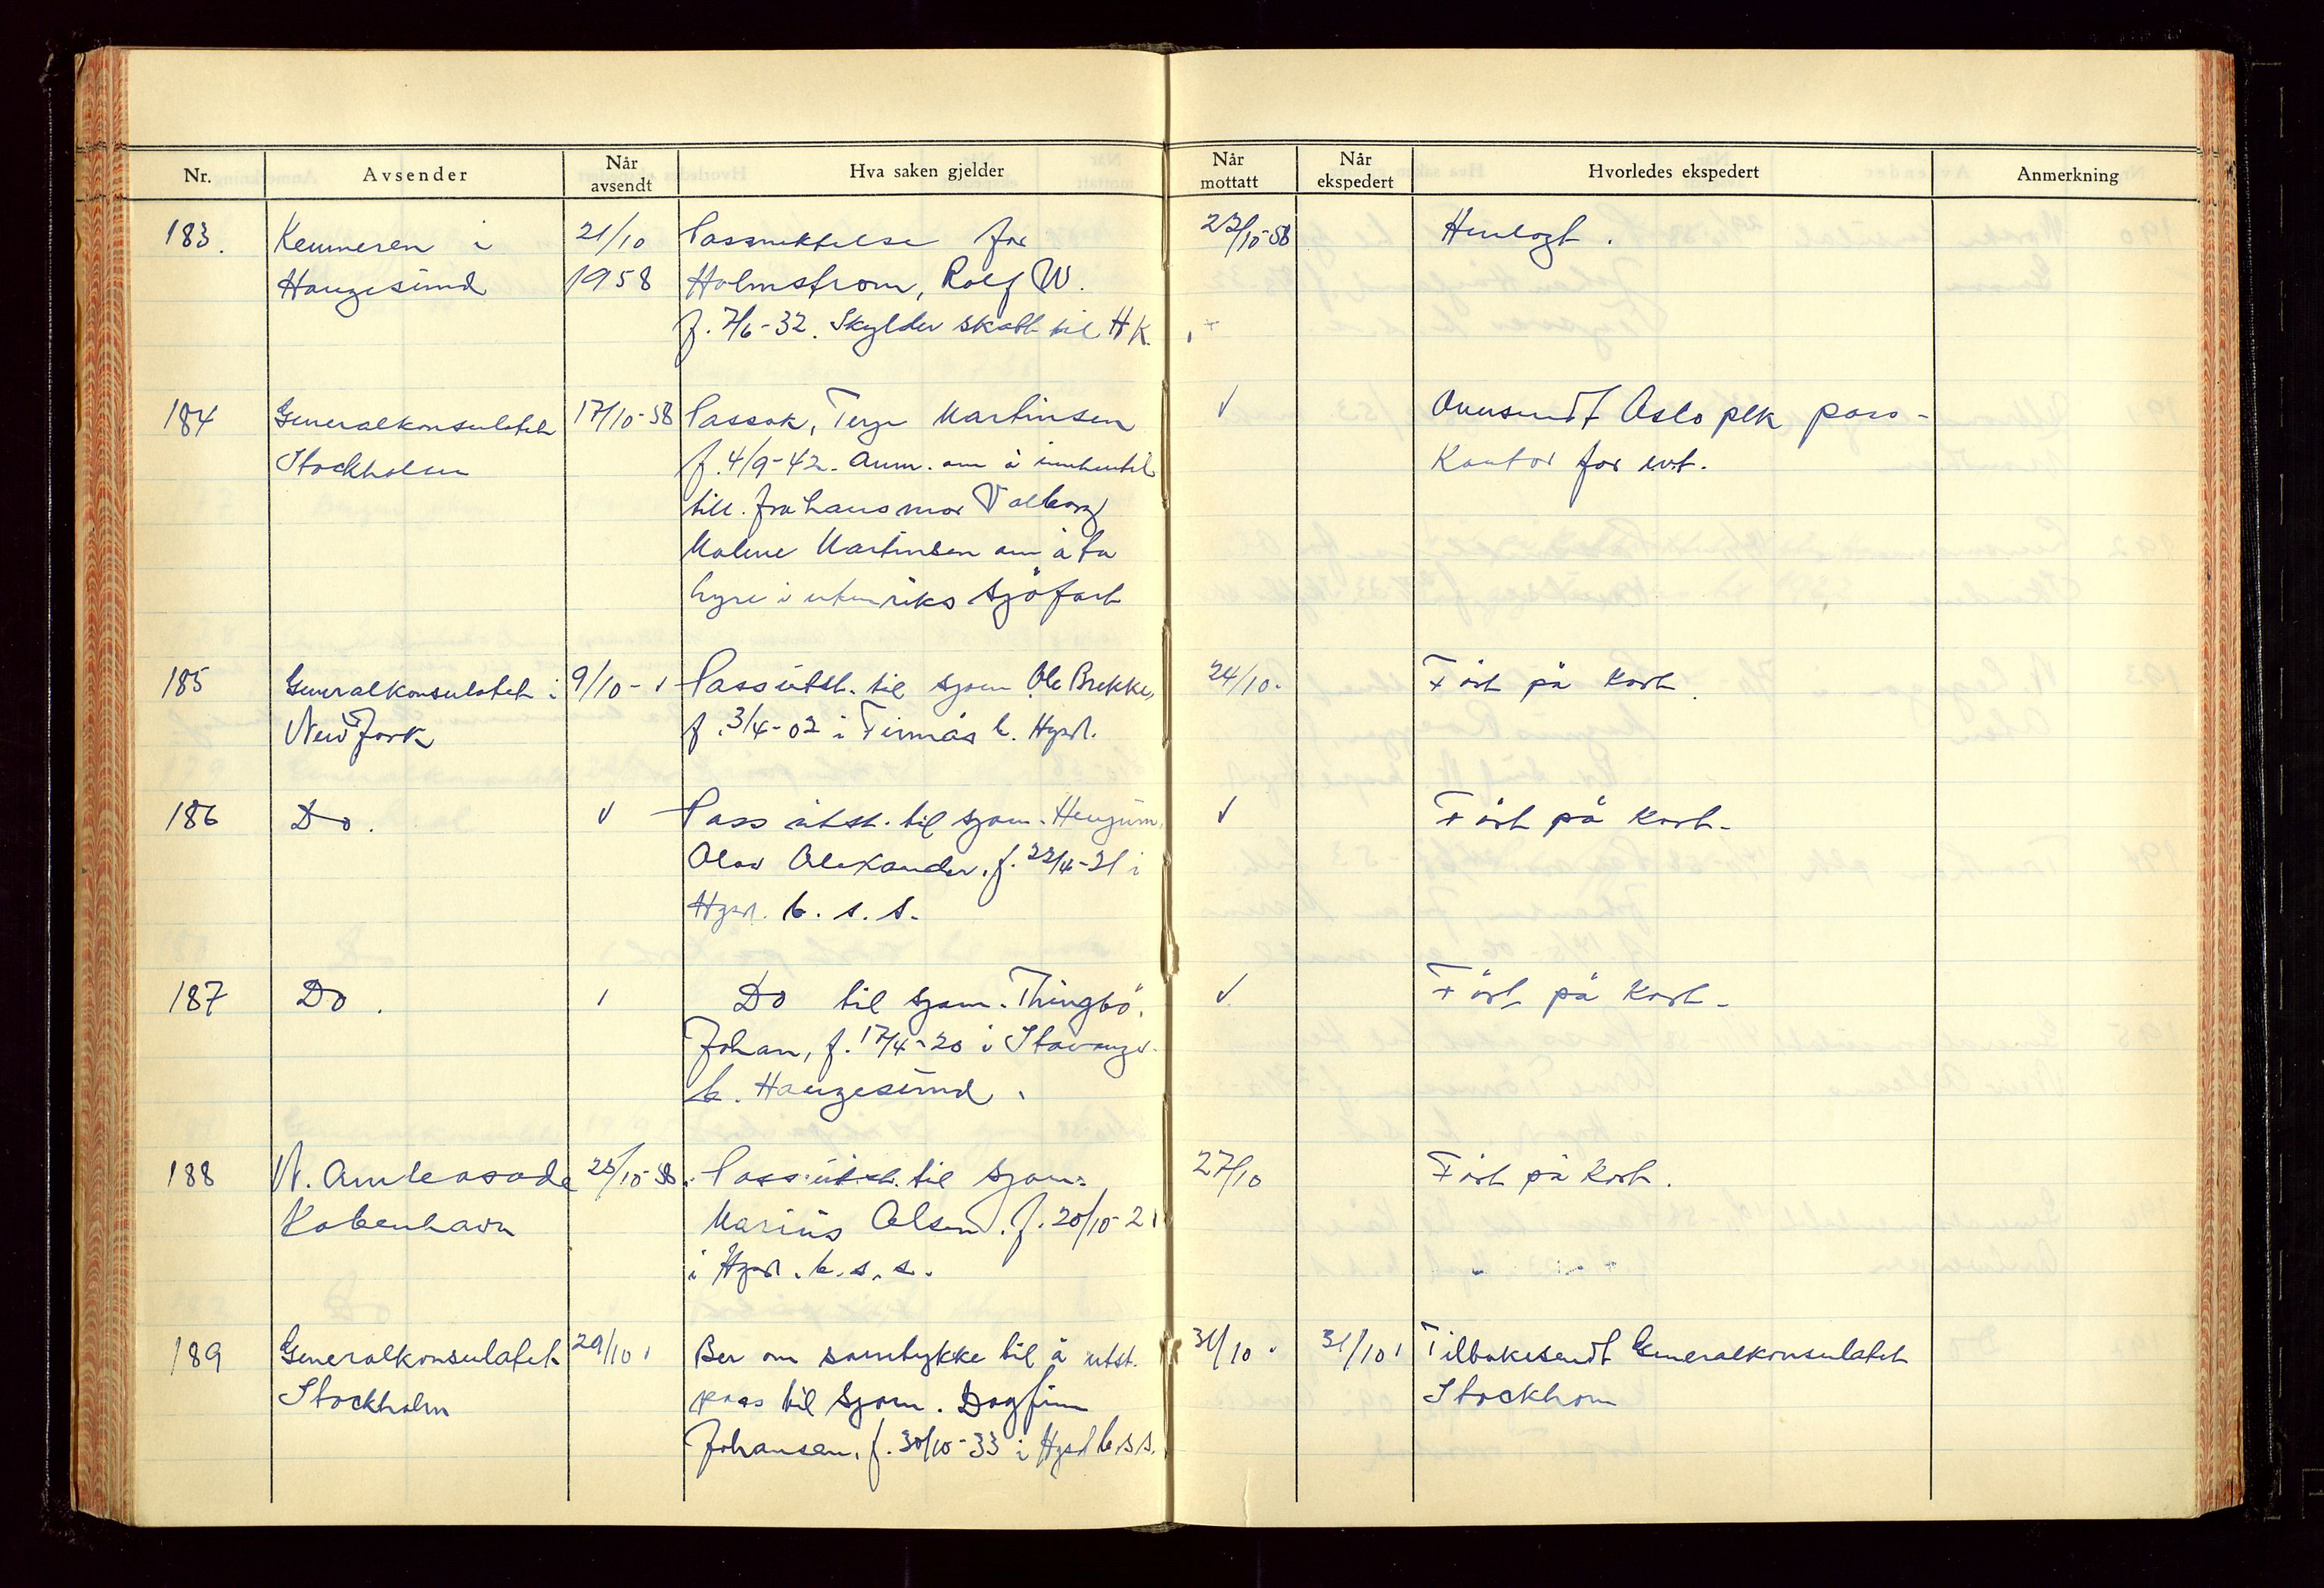 Nr. Avsender Når avsendt Hva saken gjelder Når mottatt Når ekspedert Hvorledes ekspedert Anmerkning
183. Kemneren i 21/10 Passnektelse for 23/10-58 Henlagt.
Haugesund 1958 Holmstrøm, Rolf W.
f. 7/6-32. Skylder skatt til HK.
184 Generalkonsulatet 17/10-58 Passøk, Terje Martinsen √ Oversendt Oslo plk pass-
Stockholm f. 4/9-42. Anm. om å innhente Kontor for evt.
till. fra hans mor Valborg
Malene Martinsen om å ta
hyre i utenriks sjöfart
185 Generalkonsulatet i 9/10- Pass utst. til sjøm Ole Brekke, 24/10. Fört på Kort.
New York f. 3/4-02 i b. Hgsd.
186 Do. √ Pass utst. til sjøm. √ Fört på Kort-
Olav Alexander, f. 22/4-21 i
Hgsd. b. s. s.
187 Do. Do til sjøm. Thingbö, √ Fört på Kort-
Johan, f. 17/4-20 i Stavanger
b. Haugesund.
188 N. Ambassade 25/10-58 Pass utst. til sjøm. 27/10 Fört på Kort.
København Marius Olsen. f. 20/10-21
i Hgsd. b. s. s.
189 Generalkonsulatet 29/10 Ber om samtykke til å utst. 31/10 31/10 Tilbakesendt Generalkonsulatet
Stockholm pass til sjøm. Dagfinn Stockhom
Johansen, f. 30/10-33 i Hgsd b.s.s.